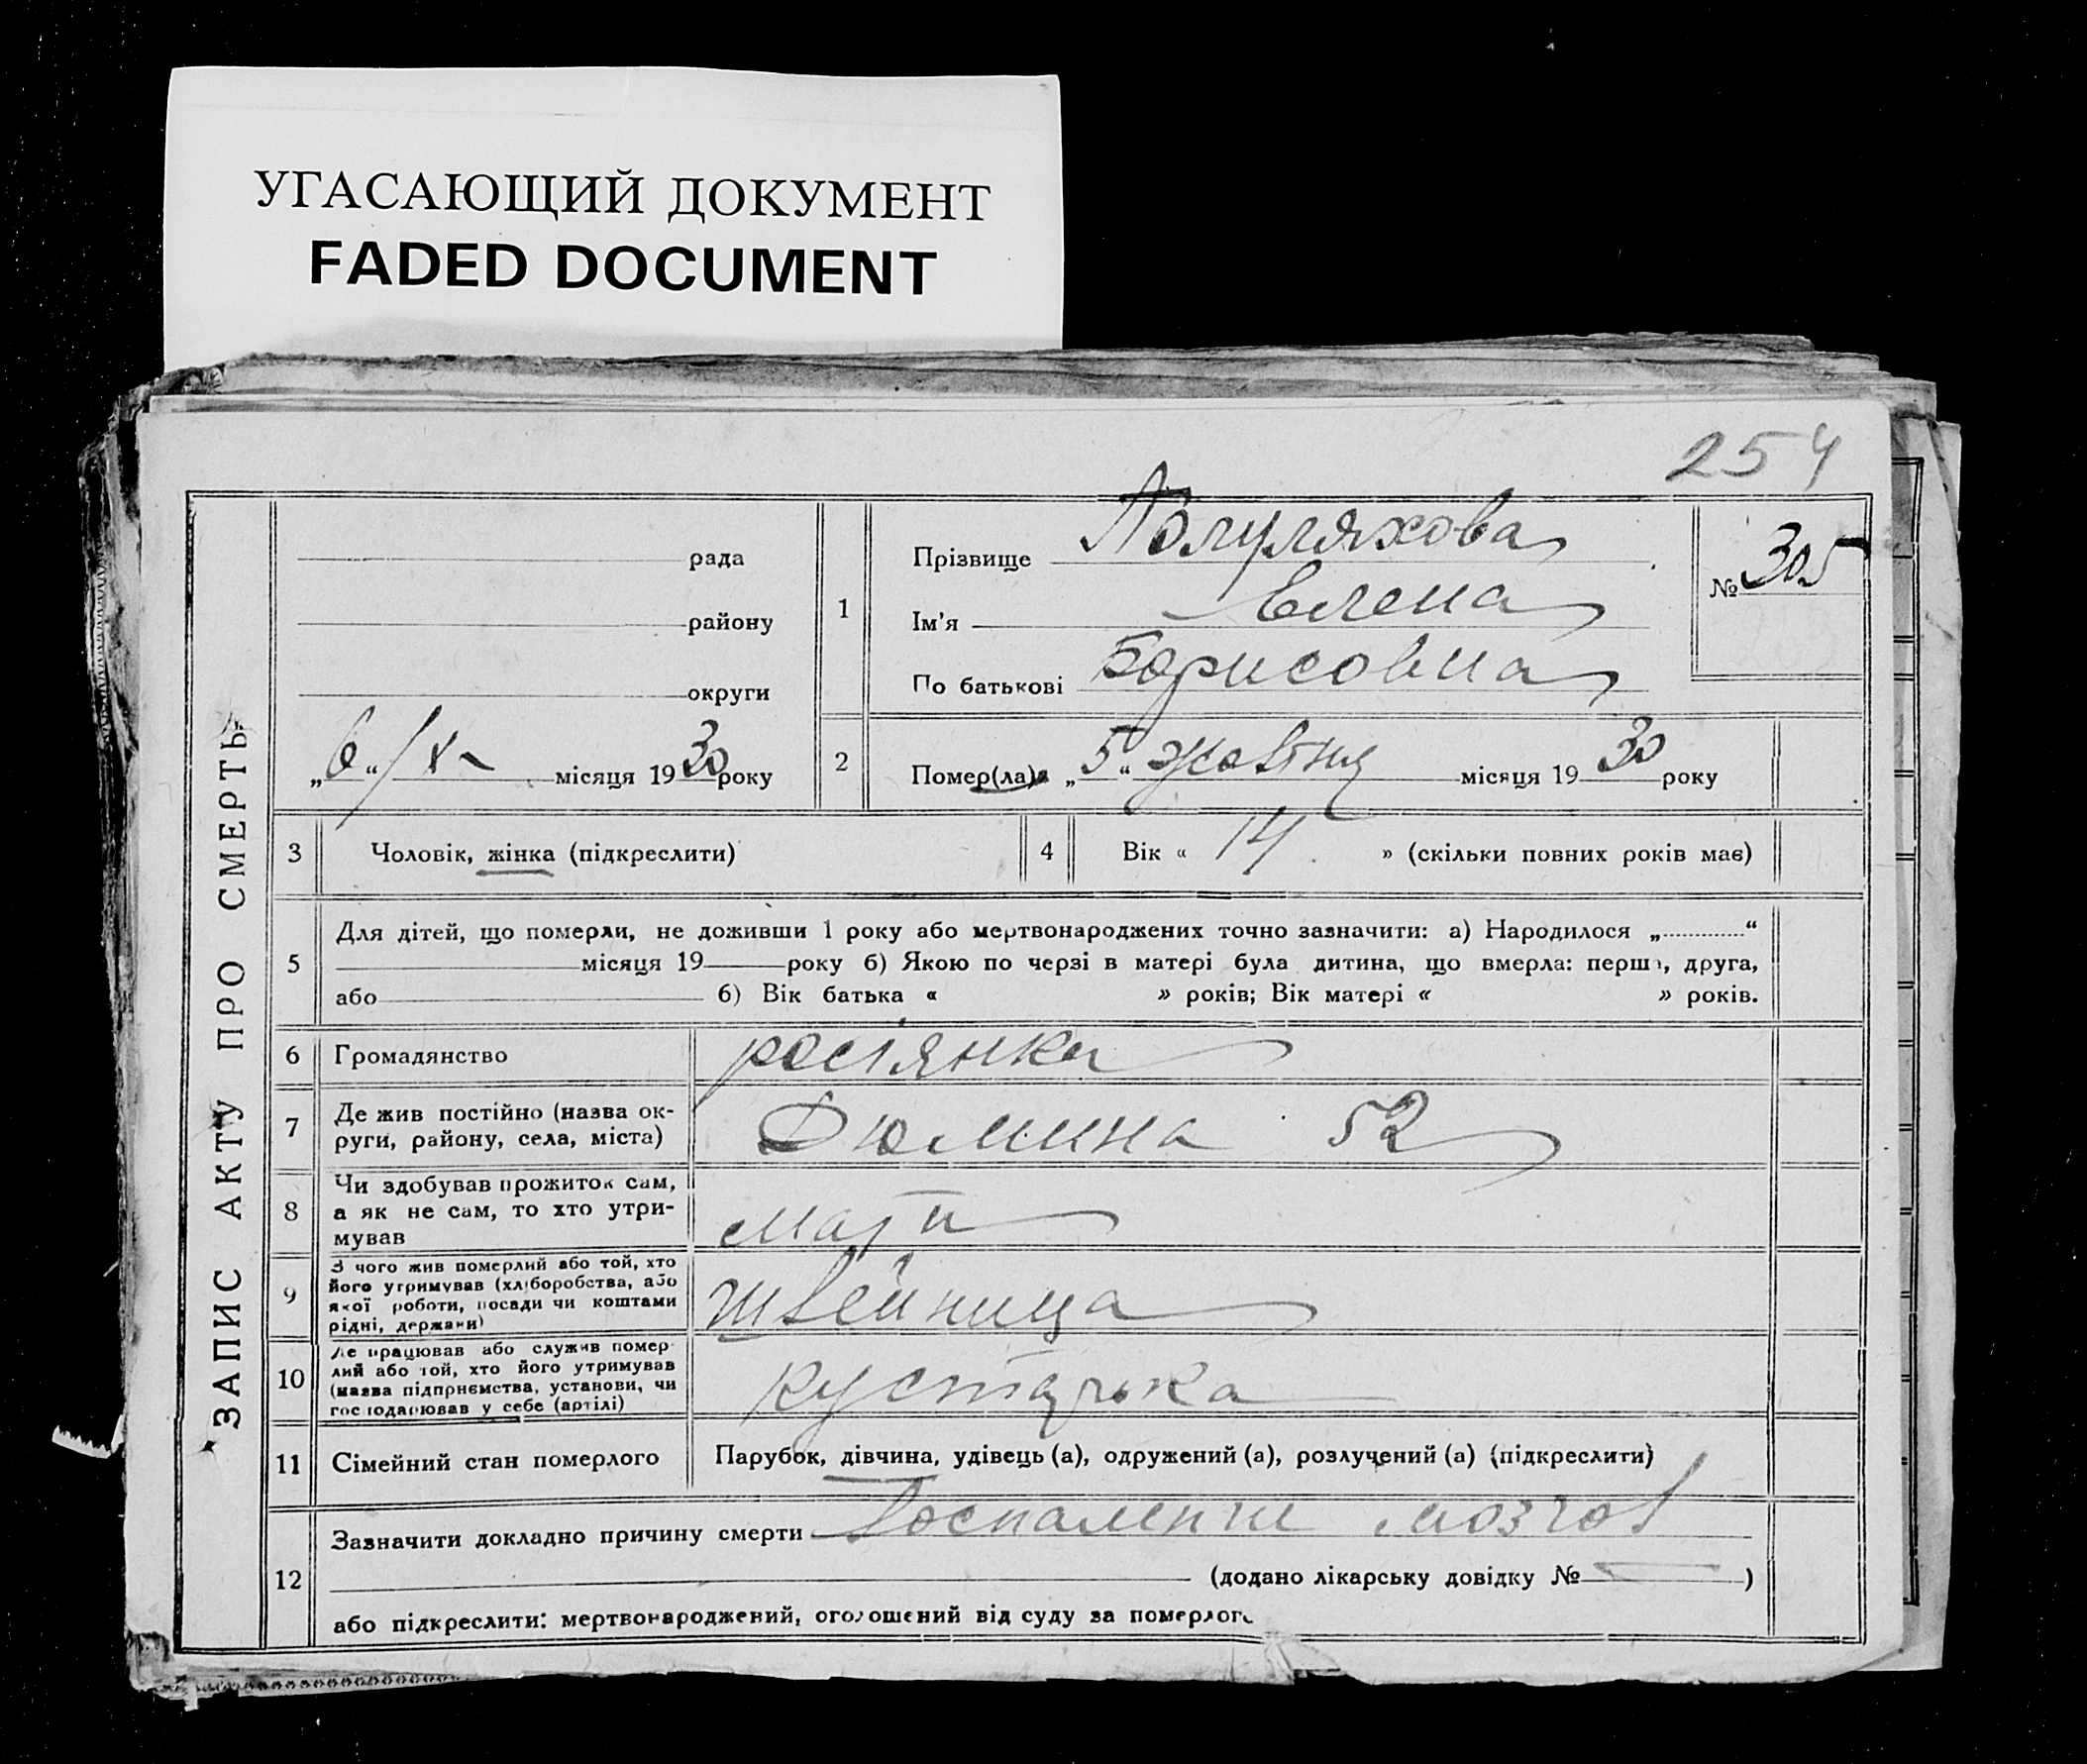 УГАСАЮЩИЙ ДОКУМЕНТ
FADED DOCUMENT
254
ЗАПИС АКТУ ПРО СМЕРТЬ
рада
району
округи
„6“ /X місяця 1930 року
1
Прізвище Полуляхова
Ім'я Елена
По батькові Борисовна
№ 305
2
Помер(ла) „5“ жовтня місяця 1930 року
3 Чоловік, жінка (підкреслити)
4 Вік « 14 » (скільки повних років має)
5
Для дітей, що померли, не доживши 1 року або мертвонароджених точно зазначити: а) Народилося „............“
місяця 19 року б) Якою по черзі в матері була дитина, що вмерла: перша, друга,
або б) Вік батька « » років; Вік матері « » років.
6 Громадянство росіянка
7 Де жив постійно (назва ок-
руги, району, села, міста) Дюмина 52
8 Чи здобував прожиток сам,
а як не сам, то хто утри-
мував мати
9 З чого жив померлий або той, хто
його утримував (хліборобства, або
якої роботи, посади чи коштами
рідні, держави) швейница
10 Де працював або служив помер-
лий або той, хто його утримував
(назва підприємства, установи, чи
господарював у себе (артілі) кустарка
11 Сімейний стан померлого Парубок, дівчина, удівець (а), одружений (а), розлучений (а) (підкреслити)
12
Зазначити докладно причину смерти Воспаление мозгов
(додано лікарську довідку № )
або підкреслити: мертвонароджений, оголошений від суду за померлого